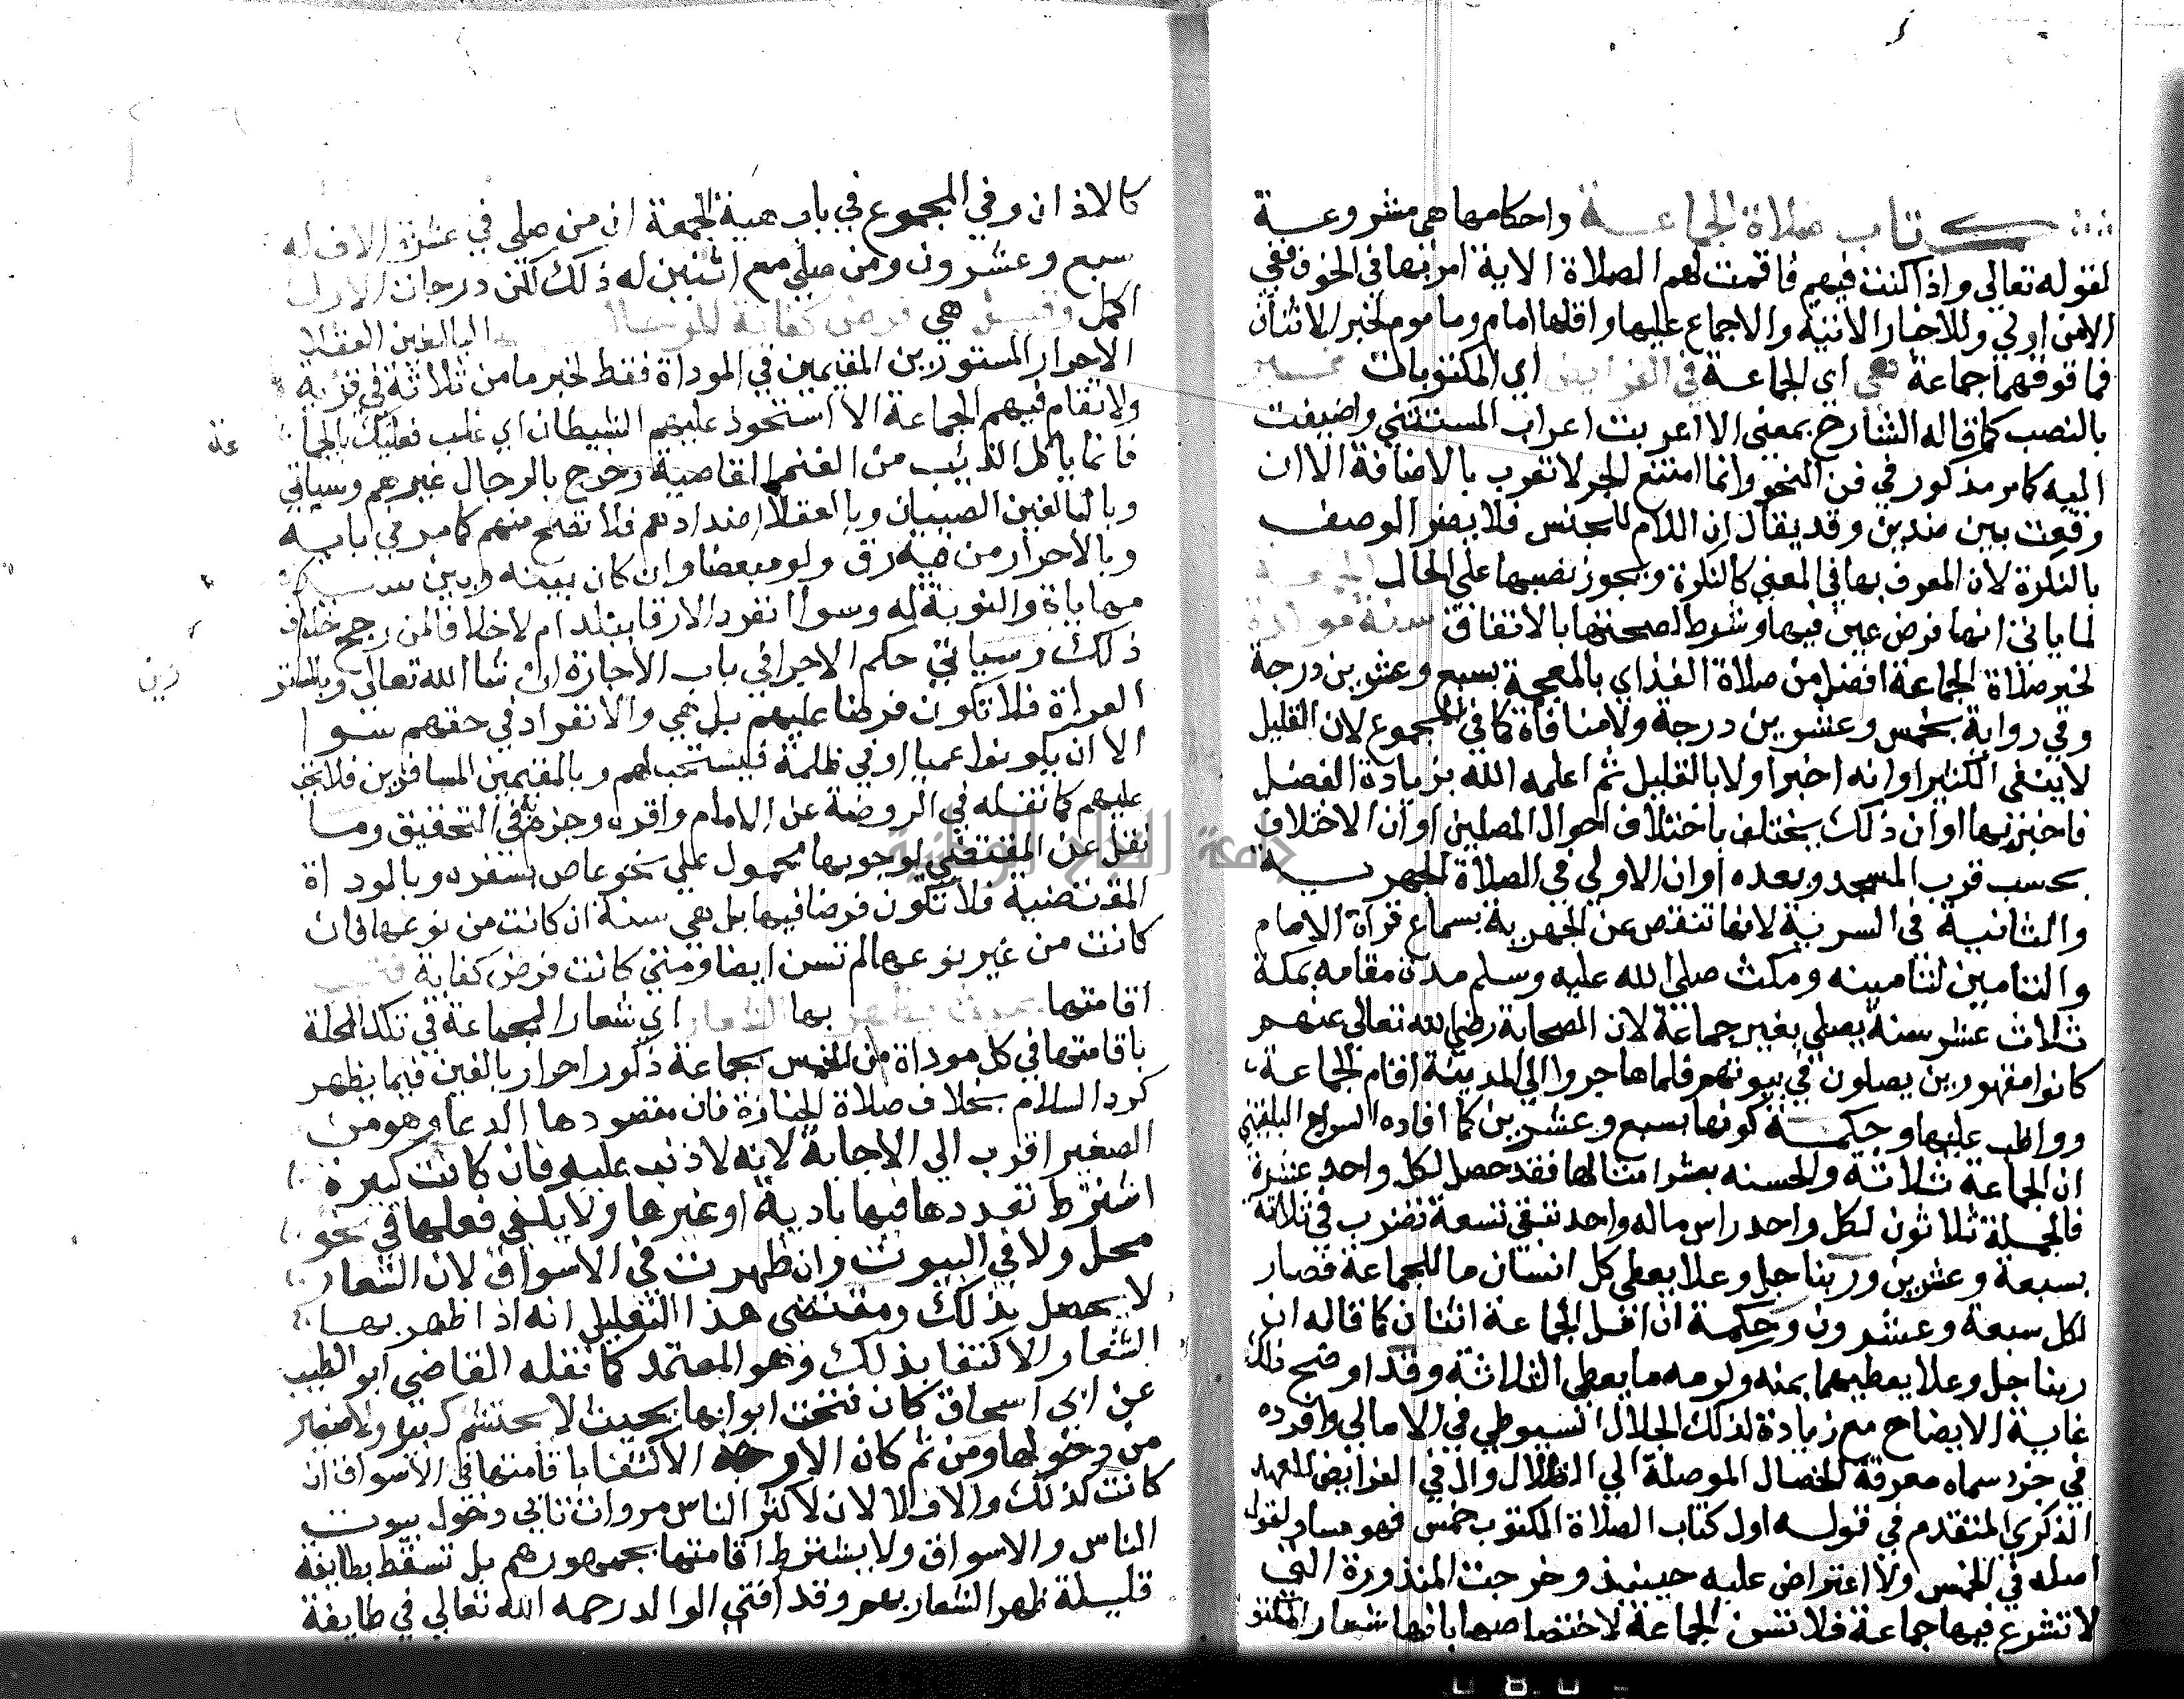 كتاب صلاة الجماعة واحكامها هي مشروعة
لقوله تعالى واذا كنت فيهم فاقمت لهم الصلاة الاية امر بها في الخوف ففي
الامن اولي وللاخبار الاتية والاجماع عليها واقلها امام وماموم لخبر الاثنان
فما فوقهما جماعة هي اي الجماعة في الفرايض اي المكتوبات غير
بالنصب كما قاله الشارح بمعنى الا اعربت اعراب المستثني واضيفت
اليه كما مر مذكور في فن النحو وانما امتنع الجر لا تعرب بالاضافة الا ان
وقعت بين ضدين وقد يقال ان اللام للجنس فلا يضر الوصف
بالنكرة لان المعرف بها في المعني كالنكرة ويجوز نصبها على الحال الجمعة
لما ياتي انها فرض عين فيها وشرط لصحتها بالاتفاق سنة موكدة
لخبر صلاة الجماعة افضل من صلاة الفذ اي بالمعجمة بسبع وعشرين درجة
وفي رواية بخمس وعشرين درجة ولا منافاة كما في المجموع لان القليل
لا ينفى الكثير او انه اخبر اولا بالقليل ثم اعلمه الله بزيادة الفضل
فاخبر بها او ان ذلك يختلف باختلاف احوال المصلين او ان الاختلاف
بحسب قرب المسجد وبعده او ان الاولي في الصلاة الجهرية
والثانية في السرية لانها تنقص عن الجهرية بسماع قراة الامام
والتامين لتامينه ومكث صلى الله عليه وسلم مدة مقامه بمكة
ثلاث عشر سنة يصلي بغير جماعة لان الصحابة رضي الله تعالى عنهم
كانوا مقهورين يصلون في بيوتهم فلما هاجروا الي المدينة اقام الجماعة
وواظب عليها وحكمة كونها بسبع وعشرين كما افاده السراج البلقيني
ان الجماعة ثلاثة والحسنه بعشر امثالها فقد حصل لكل واحد عشرة
فالجملة ثلاثون لكل واحد راس ماله واحد تبقي تسعة تضرب في ثلاثة
بسبعة وعشرين وربنا جل وعلا يعطى كل انسان ما للجماعة فصار
لكل سبعة وعشرون وحكمة ان اقل الجماعة اثنان كما قاله ان
ربنا جل وعلا يعطيهما بمنه وكرمه ما يعطي الثلاثة وقد اوضح ذلك
غاية الايضاح مع زيادة لذلك الجلال السيوطي في الامالي وافرده
في جزء سماه معرفة الخصال الموصلة الي الظلال وال في الفرايض للعهد
الذكري المتقدم في قوله اول كتاب الصلاة المكتوب خمس فهو مساو لقول
اصله في الخمس ولا اعتراض عليه حينيذ وخرجت المنذورة التي
لا تشرع فيها جماعة فلا تسن الجماعة لاختصاصها بانها شعار المكتو
كالاذان وفي المجموع في باب هيئة الجمعة ان من صلى في عشرة الاف له
سبع وعشرون ومن صلي مع اثنين له ذلك لكن درجات الاول
اكمل وقيل هي فرض كفاية للرجال البالغين العقلا
الاحرار المستورين المقيمين في الموداة فقط لخبر ما من ثلاثة في قرية
ولا تقام فيهم الجماعة الا استحوذ عليهم الشيطان اي غلب فعليك بالجما
عة
فانما ياكل الذيب من الغنم القاصية وخرج بالرجال غيرهم وسياتي
وبالبالغين الصبيان وبالعقلا اضدادهم فلا تصح منهم كما مر في بابه
وبالاحرار من فيه رق ولو مبعضا وان كان بينه وبين سيده
مهاياة والنوبة له وسواا نفرد الارقا ببلد ام لا خلافا لمن رجح خلاف
ذلك وسياتي حكم الاجرا في باب الاجارة ان شا الله تعالى وبالمستو
رين
العراة فلا تكون فرضا عليهم بل هي والانفراد في حقهم سوا
الا ان يكونوا عميا او في ظلمة فتستحب لهم وبالمقيمين المسافرين فلا تجب
عليهم كما نقله في الروضة عن الامام واقره وجزم به في التحقيق وما
نقل عن المقتضي لوجوبها محمول علي نحو عاص بسفره وبالموداة
المقتضية فلا تكون فرضا فيها بل هي سنة ان كانت من نوعها فان
كانت من غير نوعها لم تسن ايضا ومتي كانت فرض كفاية فتجب
اقامتها بحيث يظهر بها الشعار اي شعار الجماعة في تلك المحلة
باقامتها في كل موداة من الخمس بجماعة ذكور احرار بالغين فيما يظهر
كرد السلام بخلاف صلاة الجنازة فان مقصودها الدعا وهو من
الصغير اقرب الي الاجابة لانه لا ذنب عليه فان كانت كبيرة
اشترط تعددها فيها بادية او غيرها ولا يكفي فعلها في نحو
محل ولا في البيوت وان ظهرت في الاسواق لان الشعار
لا يحصل بذلك ومقتضي هذا التعليل انه اذا ظهر بها
الشعار الاكتفا بذلك وهو المعتمد كما نقله القاضي ابو الطيب
عن ابي اسحاق كان فتحت ابوابها بحيث لا يحتشم كبير ولا صغير
من دخولها ومن ثم كان الاوجه الاكتفا باقامتها في الاسواق ان
كانت كذلك والا فلا لان لاكثر الناس مروات تابي دخول بيوت
الناس والاسواق ولا يشترط اقامتها بجمهورهم بل تسقط بطايفة
قليلة ظهر الشعار بهم وقد افتي الوالد رحمه الله تعالى في طايفة
جامعة النجاح الوطنية